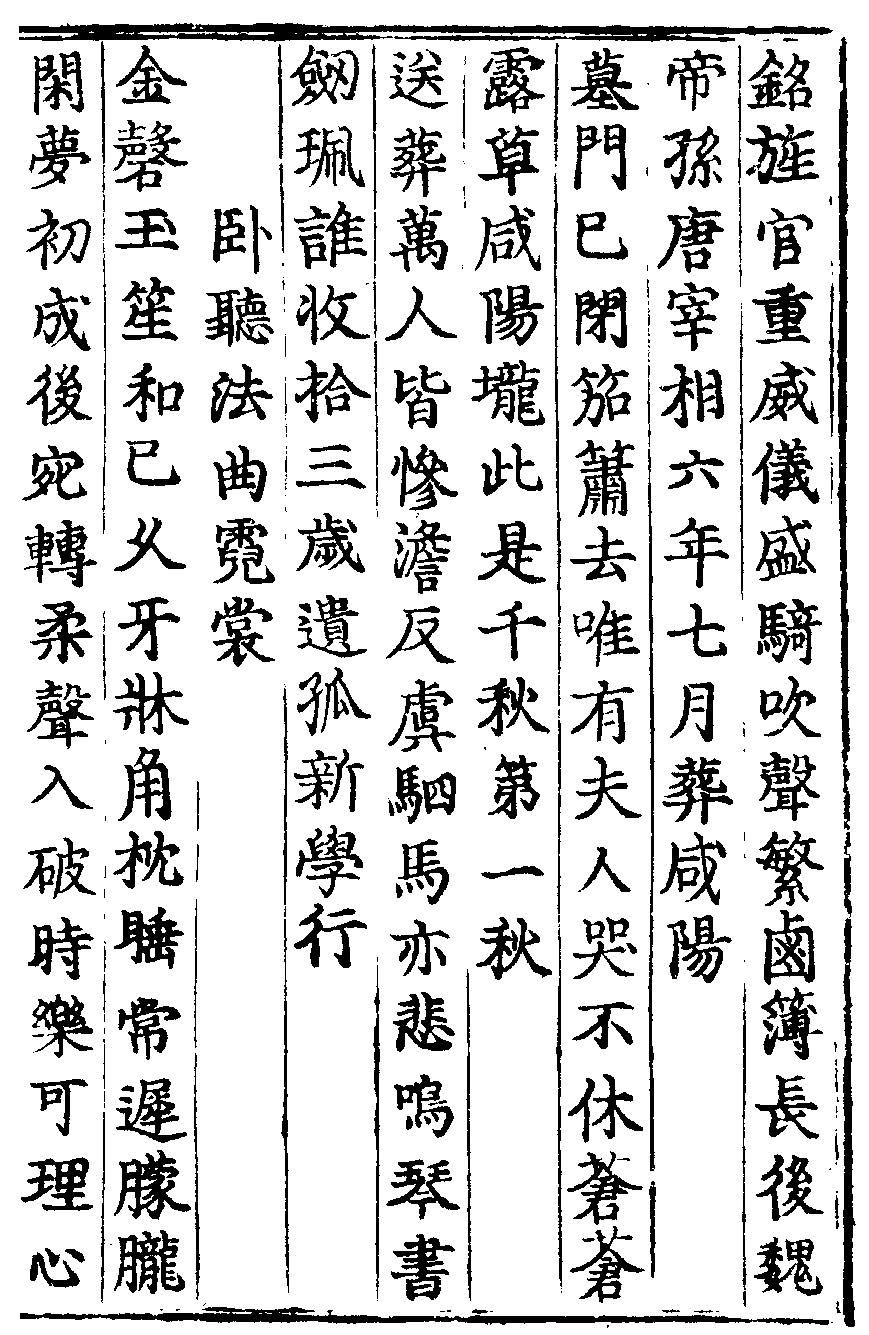 銘旌官重威儀盛騎吹聲繁鹵簿長後魏
帝孫唐宰相六年七月葬咸陽
墓門已閉笳簫去唯有夫人哭不休蒼蒼
露草咸陽壠此是千秋第一秋
送葬萬人皆慘澹反虞駟馬亦悲鳴琴書
劒珮誰收拾三歲遺孤新學行
卧聽法曲霓裳
金磬玉笙和已乆牙牀角枕睡常遲朦朧
閑夢初成後宛轉柔聲入破時樂可理心